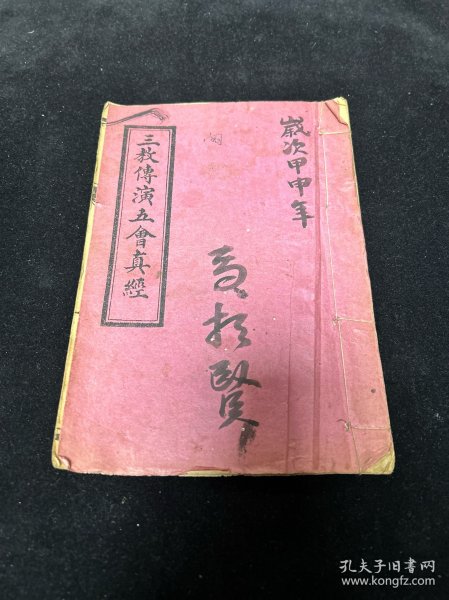 歲次甲申年
三教傳演五會真經
賢
孔夫子旧书网
www.kongfz.com